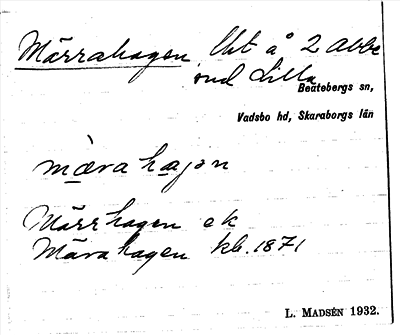 Märrahagen Utt å 2 abbe
und Lilla
Beatebergs sn,
Vadsbo hd, Skaraborgs län
mærahaɡən
Märrhagen ek
Märahagen kb. 1871
L. MADSÉN 1932.